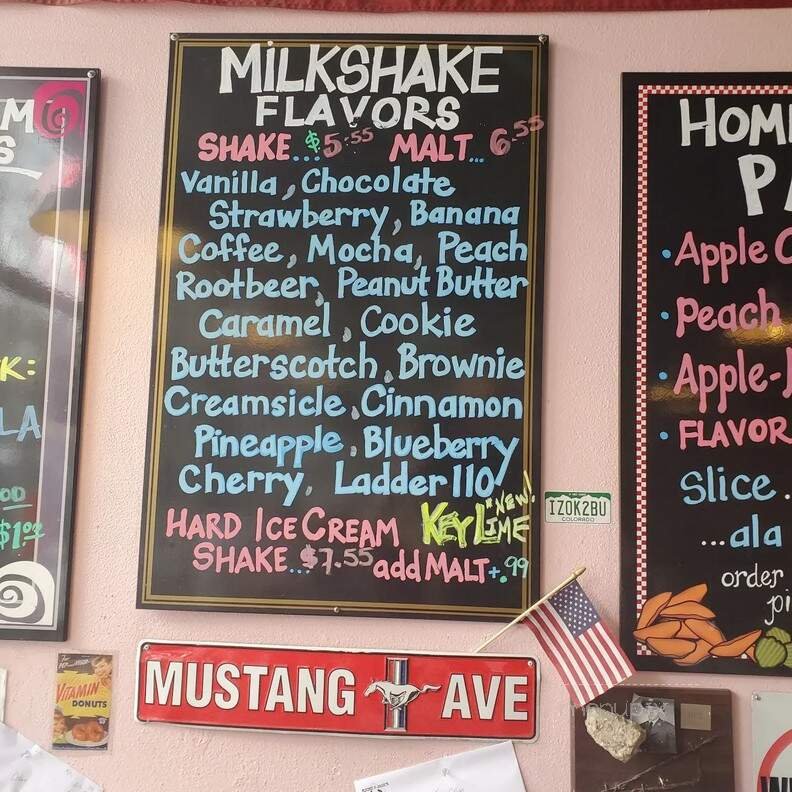 MILKSHAKE
FLAVORS
SHAKE...$5.55 MALT...6.55
Vanilla, Chocolate
Strawberry, Banana
Coffee, Mocha, Peach
Rootbeer, Peanut Butter
Caramel, Cookie
Butterscotch, Brownie
Creamsicle, Cinnamon
Pineapple, Blueberry
Cherry, Ladder 110
*NEW!
KEY LIME
HARD ICE CREAM
SHAKE...$7.55 add MALT+.99
K:
LA
$1.02
HOM
PA
• Apple C
• Peach
• Apple-
• FLAVOR
Slice..
...ala
order
pi
IZOK2BU
COLORADO
MUSTANG AVE
VITAMIN
DONUTS